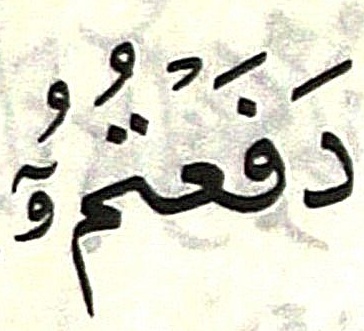 دَفَعۡتُمُۥٓ